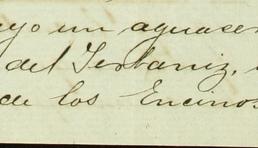 ayo un aguacer
del Terbaniz,
de los Encinos